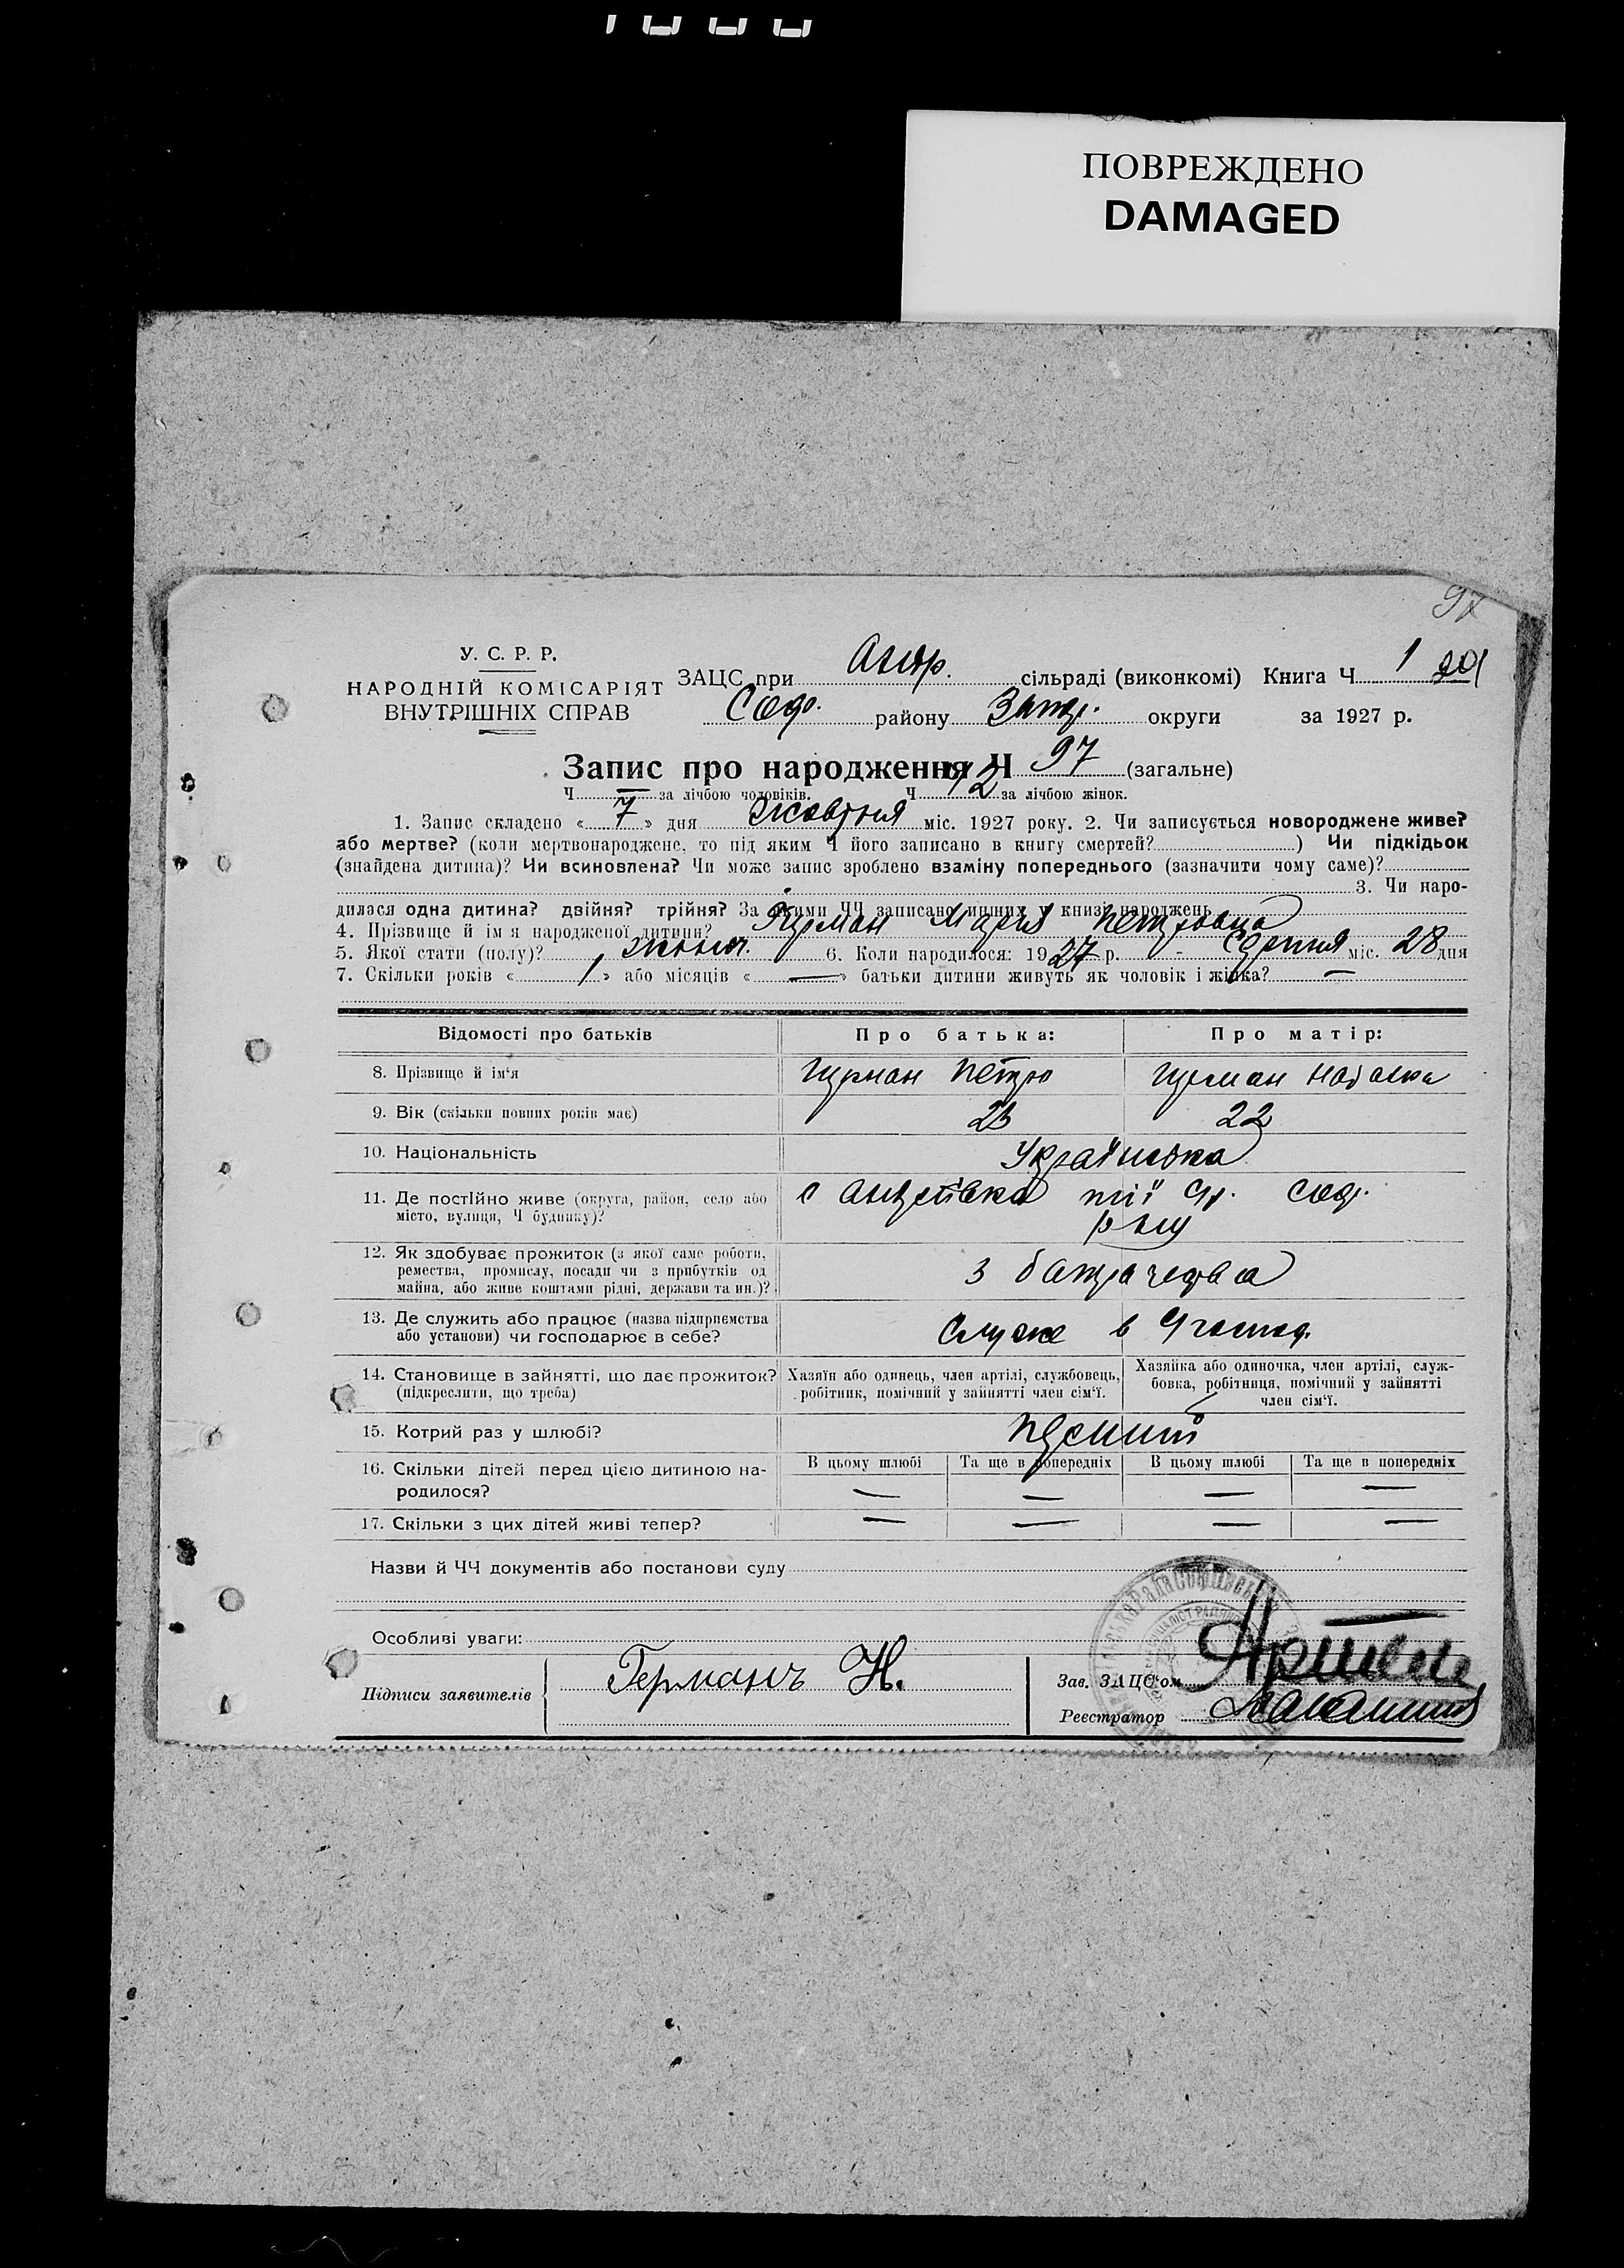 ПОВРЕЖДЕНО
DAMAGED
97
У. С. Р. Р.
НАРОДНІЙ КОМІСАРІЯТ
ВНУТРІШНІХ СПРАВ
ЗАЦС при сільраді (виконкомі) Книга Ч 1
району округи за 1927 р.
Запис про народження Ч 97 (загальне)
Ч — за лічбою чоловіків. Ч за лічбою жінок.
1. Запис складено « 7 » дня жовтня міс. 1927 року. 2. Чи записується новороджене живе?
або мертве? (коли мертвонароджене, то під яким Ч його записано в книгу смертей? ) Чи підкідьок
(знайдена дитина)? Чи всиновлена? Чи може запис зроблено взаміну попереднього (зазначити чому саме)?
3. Чи наро-
дилася одна дитина? двійня? трійня? За якими ЧЧ записано инших у книзі народжень
4. Прізвище й ім'я народженої дитини? Марія Петровна
5. Якої стати (полу)? 6. Коли народилося: 1927 р. - Серпня міс. 28 дня
7. Скільки років « 1 » або місяців « — » батьки дитини живуть як чоловік і жінка? —
Відомості про батьків Про батька: Про матір:
8. Прізвище й ім'я Петро
9. Вік (скільки повних років має) 23 22
10. Національність Українська
11. Де постійно живе (округа, район, село або
місто, вулиця, Ч будинку)? с
12. Як здобуває прожиток (з якої саме роботи,
ремества, промислу, посади чи з прибутків од
майна, або живе коштами рідні, держави та ин.)? з
13. Де служить або працює (назва підприємства
або установи) чи господарює в себе? Служе в
14. Становище в зайнятті, що дає прожиток?
(підкреслити, що треба)
Хазяїн або одинець, член артілі, службовець,
робітник, помічний у зайнятті член сім'ї.
Хазяйка або одиночка, член артілі, служ-
бовка, робітниця, помічний у зайнятті
член сім'ї.
15. Котрий раз у шлюбі?
16. Скільки дітей перед цією дитиною на-
родилося?
В цьому шлюбі Та ще в попередніх В цьому шлюбі Та ще в попередніх
— — — —
17. Скільки з цих дітей живі тепер? — — — —
Назви й ЧЧ документів або постанови суду
Особливі уваги:
Підписи заявителів Германъ Н.
Зав. ЗАЦС'ом
Реєстратор